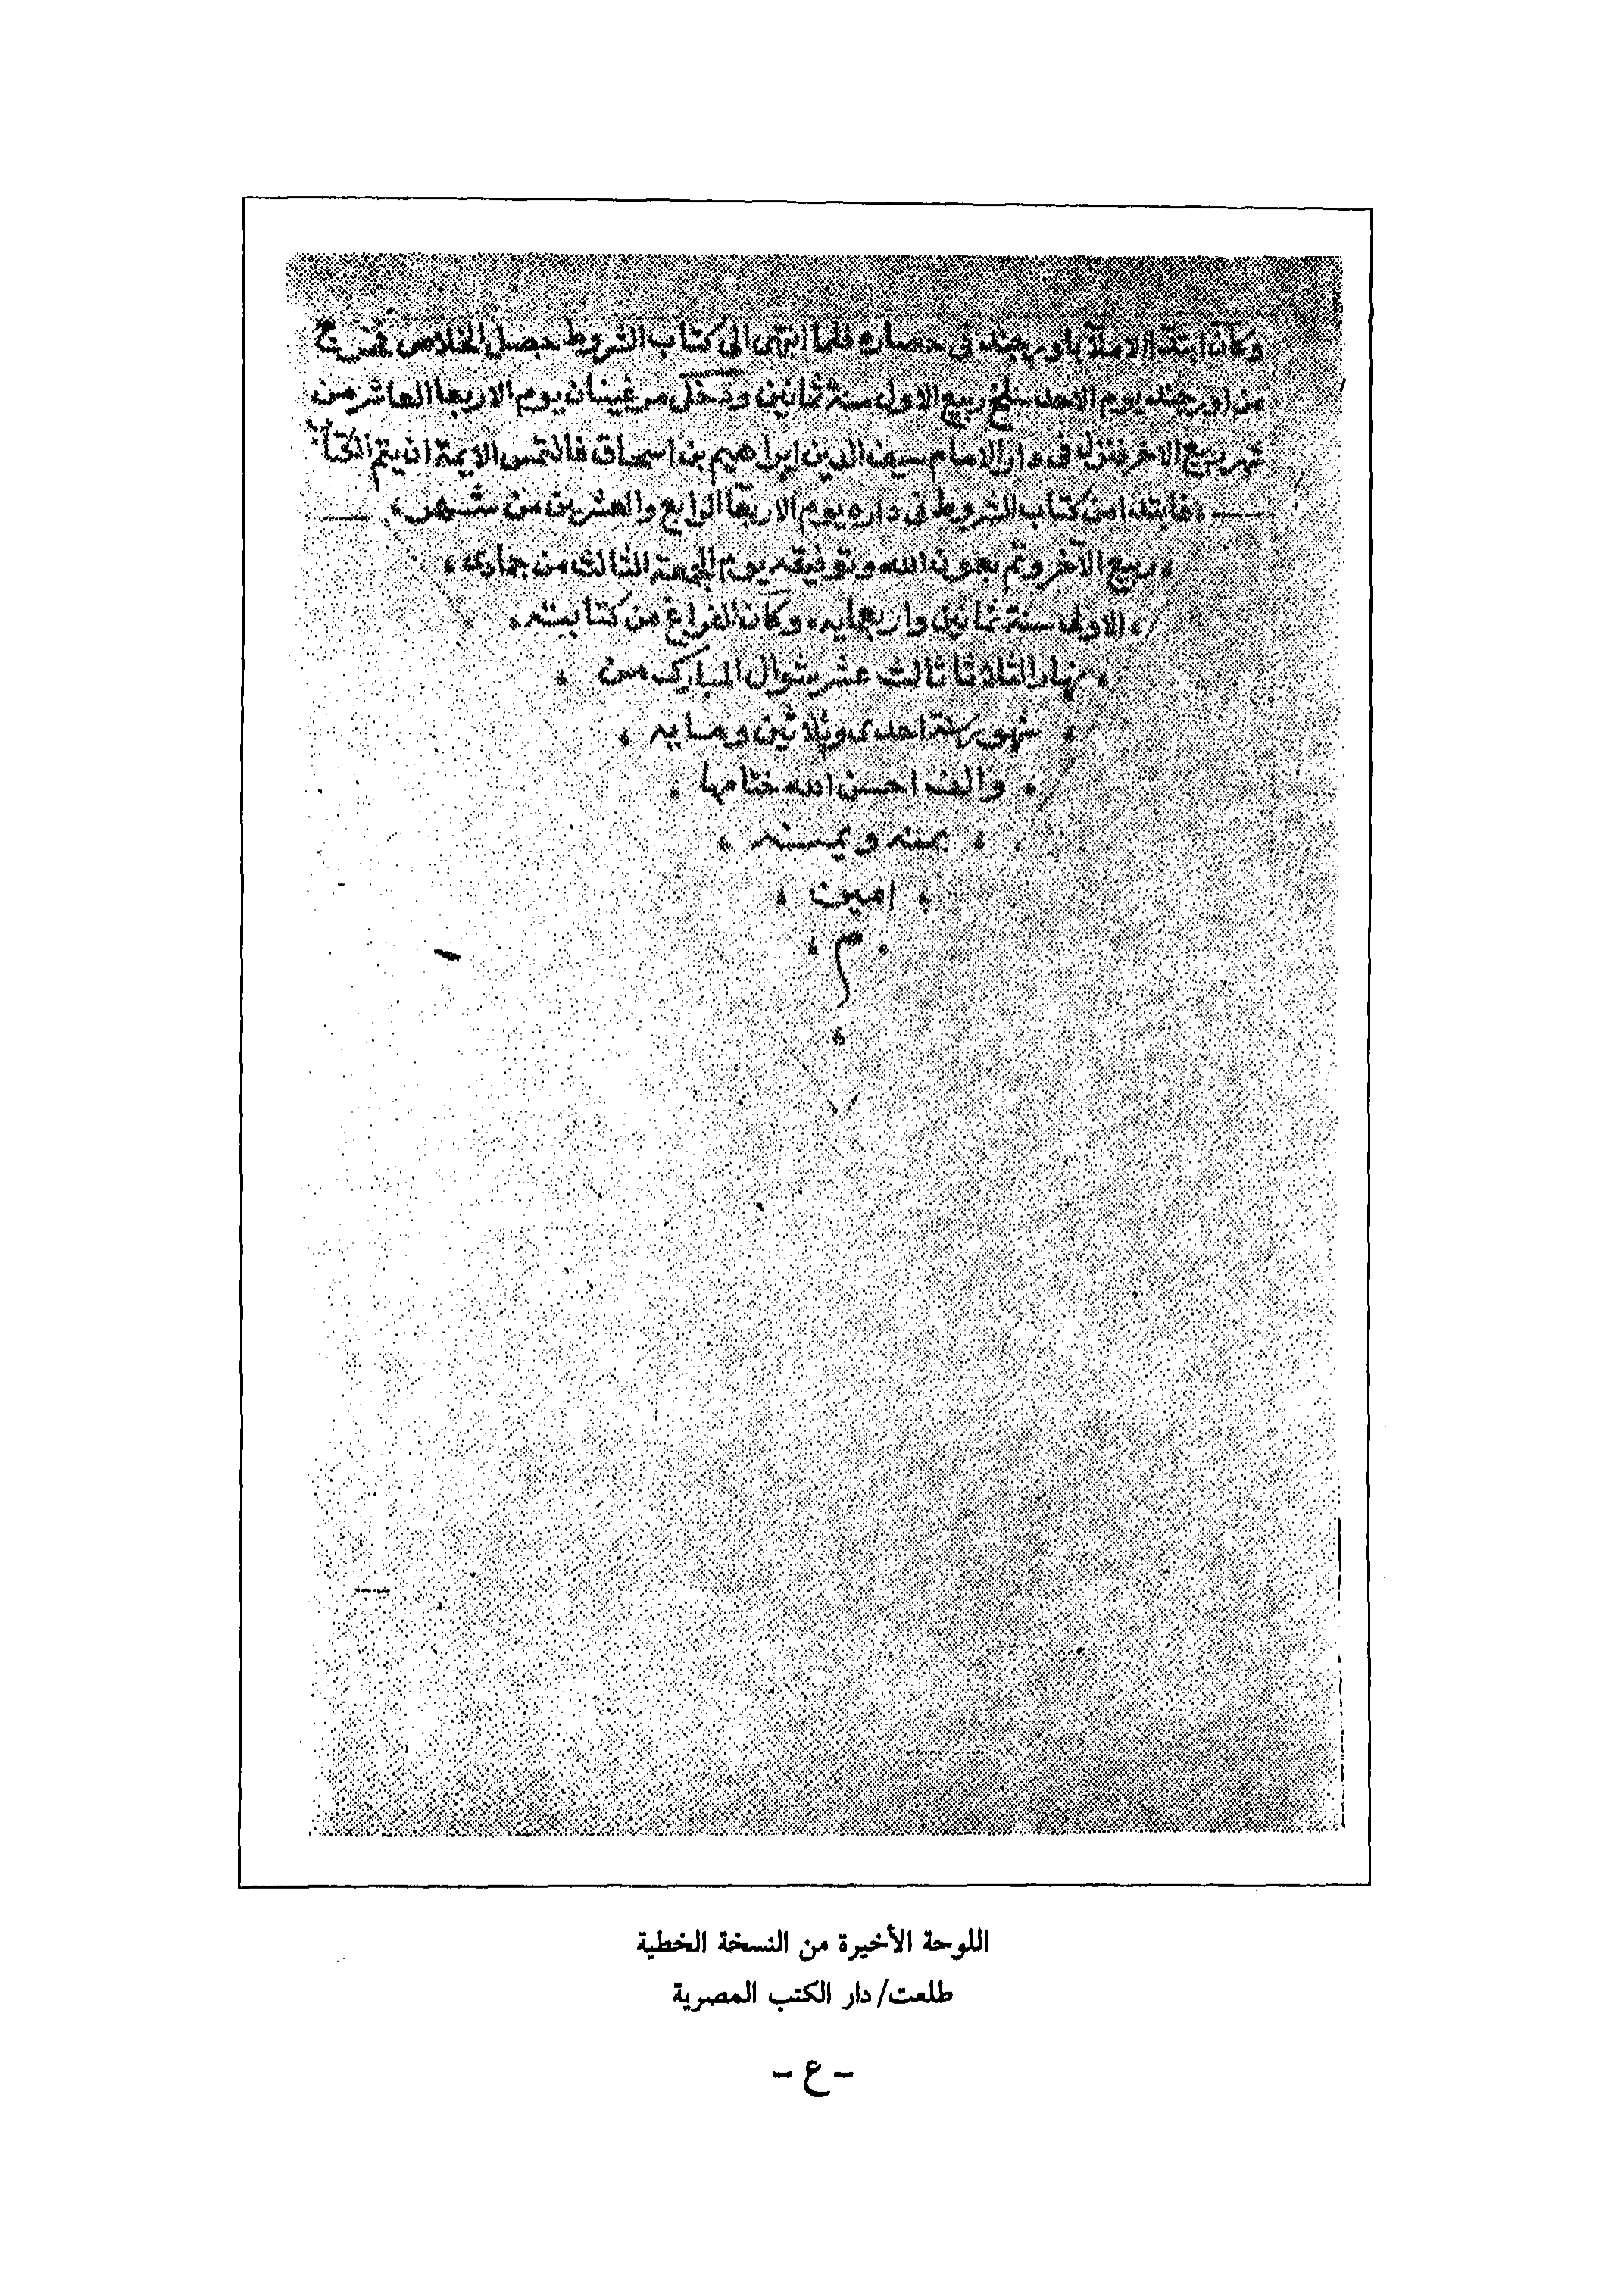 وكان ابتدا الاملآ باوزجند فى حصاره فلما انتهى الى كتاب الشروط حصل الخلاص فخرج
من اوزجند يوم الاحد سلخ ربيع الاول سنة ثمانين ودخل مرغينان يوم الاربعا العاشر من
شهر ربيع الاخر فنزل فى دار الامام سيف الدين ابراهيم بن اسحاق فالتمس الايمة ان يتم الكتاب
فابتدا من كتاب الشروط فى داره يوم الاربعا الرابع والعشرين من شهر
ربيع الآخر وتم بعون الله وتوفيقه يوم الجمعة الثالث من جمادى
الاولى سنة ثمانين واربعمايه وكان الفراغ من كتابته
نهار الثلاثا ثالث عشر شوال المبارك من
شهور سنة احدى وثلاثين ومايه
والف احسن الله ختامها
بمنه ويمنه
امين
م
اللوحة الأخيرة من النسخة الخطية
طلعت/دار الكتب المصرية
- ع -